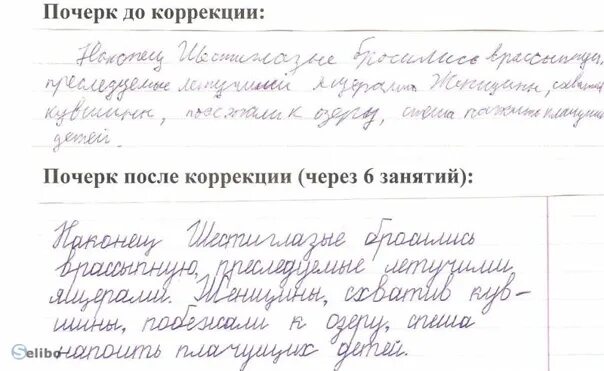 Почерк до коррекции:
Наконец Шестиглазые бросились врассыпную,
преследуемые летучими ящерами. Женщины, схватив
кувшины, побежали к озеру, спеша плачущих
детей.
Почерк после коррекции (через 6 занятий):
Наконец Шестиглазые бросились
врассыпную, преследуемые летучими
ящерами. Женщины, схватив кув-
шины, побежали к озеру, спеша
напоить плачущих детей.
Selibo